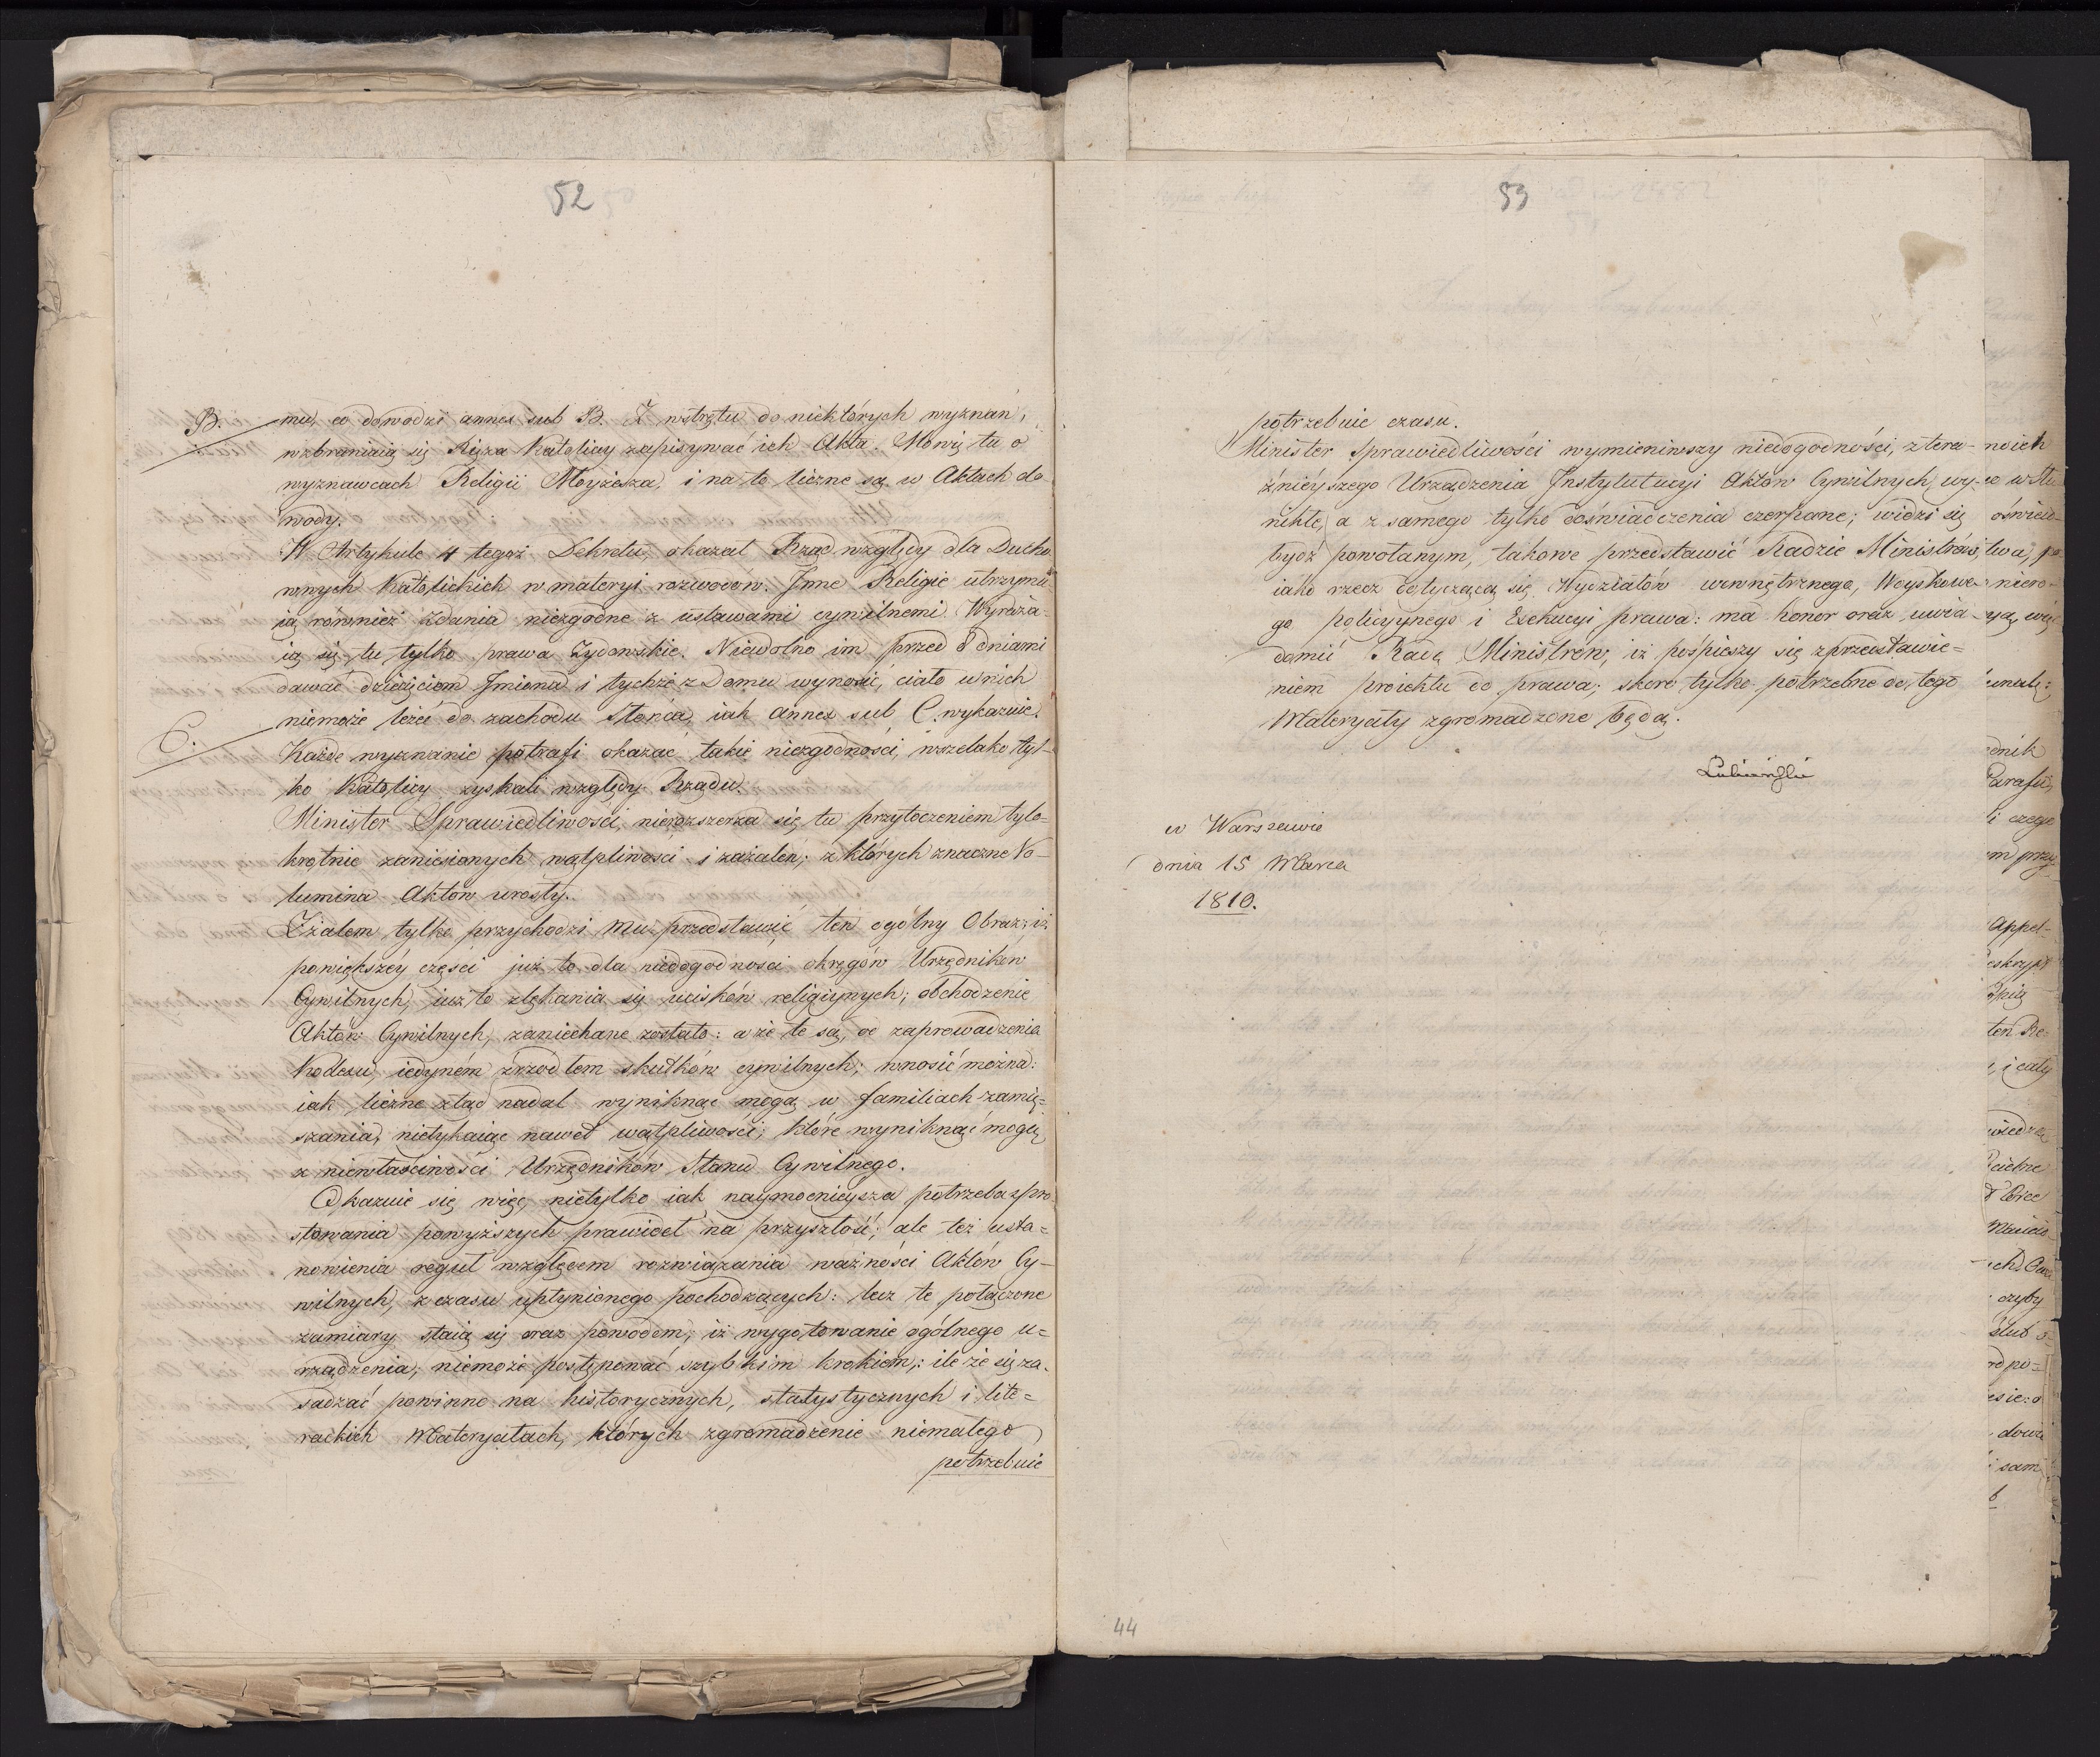 52
B. mu, co dowodzi annex sub B. Z wstrętu do niektórych wyznań,
wzbraniaią się Xięża Katoliccy zapisywać ich Akta. Mowię tu o
wyznawcach Religii Moyżesza, i na to liczne są w Aktach do
wody.
W Artykule 4 tegoż Dekretu, okazał Rząd względy dla Ducho
wnych Katolickich w materyi rozwodow. Inne Religie utrzymu
ią również zdania niezgodne z ustawami cywilnemi. Wyraża
ią się tu tylko prawa Żydowskie. Niewolno im przed 8 dniami
dawać dziecięciom Imiona i tychże z Domu wynosić, ciało u nich
niemoże leżeć do zachodu słońca, iak annex sub C. wykazuie.
C.
Każde wyznanie potrafi okazać takie niezgodności, wszelako tyl-
ko Katolicy zyskali względy Rządu.
Minister Sprawiedliwości, nierozszerza się tu przytoczeniem tylo=
krotnie zaniesionych wątpliwości i zażaleń; z których znaczne Vo-
lumina Aktow urosły.
Z żalem tylko przychodzi mu przedstawić ten ogólny Obraz; iż
powiększéy części już to dla niedogodności okręgów Urzędników
Cywilnych, iuż to zlękania się ucisków religiynych; obchodzenie
Aktów Cywilnych, zaniechane zostało: a że te są, od zaprowadzenia
Kodexu, iedyném źrzodłem skutków cywilnych; wnosić można:
iak liczne ztąd nadal wyniknąć mogą w familiach zamię=
szania, nietykaiąc nawet wątpliwości, które wyniknąć mogą
z niewłaściwości Urzędników Stanu Cywilnego.
Okazuie się więc, nietylko iak naymocnieysza potrzeba spro
stowania powyższych prawideł na przyszłość; ale też usta=
nowienia reguł względem rozwiązania ważności Aktów Cy-
wilnych, z czasu upłynionego pochodzących: lecz te połączone
zamiary staią się oraz powodem; iż wygotowanie ogólnego u=
rządzenia, niemoże postępować szybkim krokiem; ile że się za
sadzać powinno na historycznych, statystycznych i lite=
rackich Materyałach, których zgromadzenie niemałego
potrzebuie
53
potrzebuie czasu.
Minister Sprawiedliwości wymieniwszy niedogodności, z tera-
źnieyszego Urządzenia Instytutucyi Aktów Cywilnych, wy-
nikłe, a z samego tylko doświadczenia czerpane; widzi się
bydź powołanym, takowe przedstawić Radzie Ministrów,
iako rzecz dotyczącą się Wydziałów wewnętrznego, Woyskowe-
go policyynego i Exekucyi prawa: ma honor oraz uwia-
domić Radę Ministrów, iż pośpieszy się z przedstawie=
niem proiektu do prawa; skoro tylko potrzebne do tego
Materyały zgromadzone będą.
Lubieński
w Warszawie
dnia 15 Marca
1810.
44